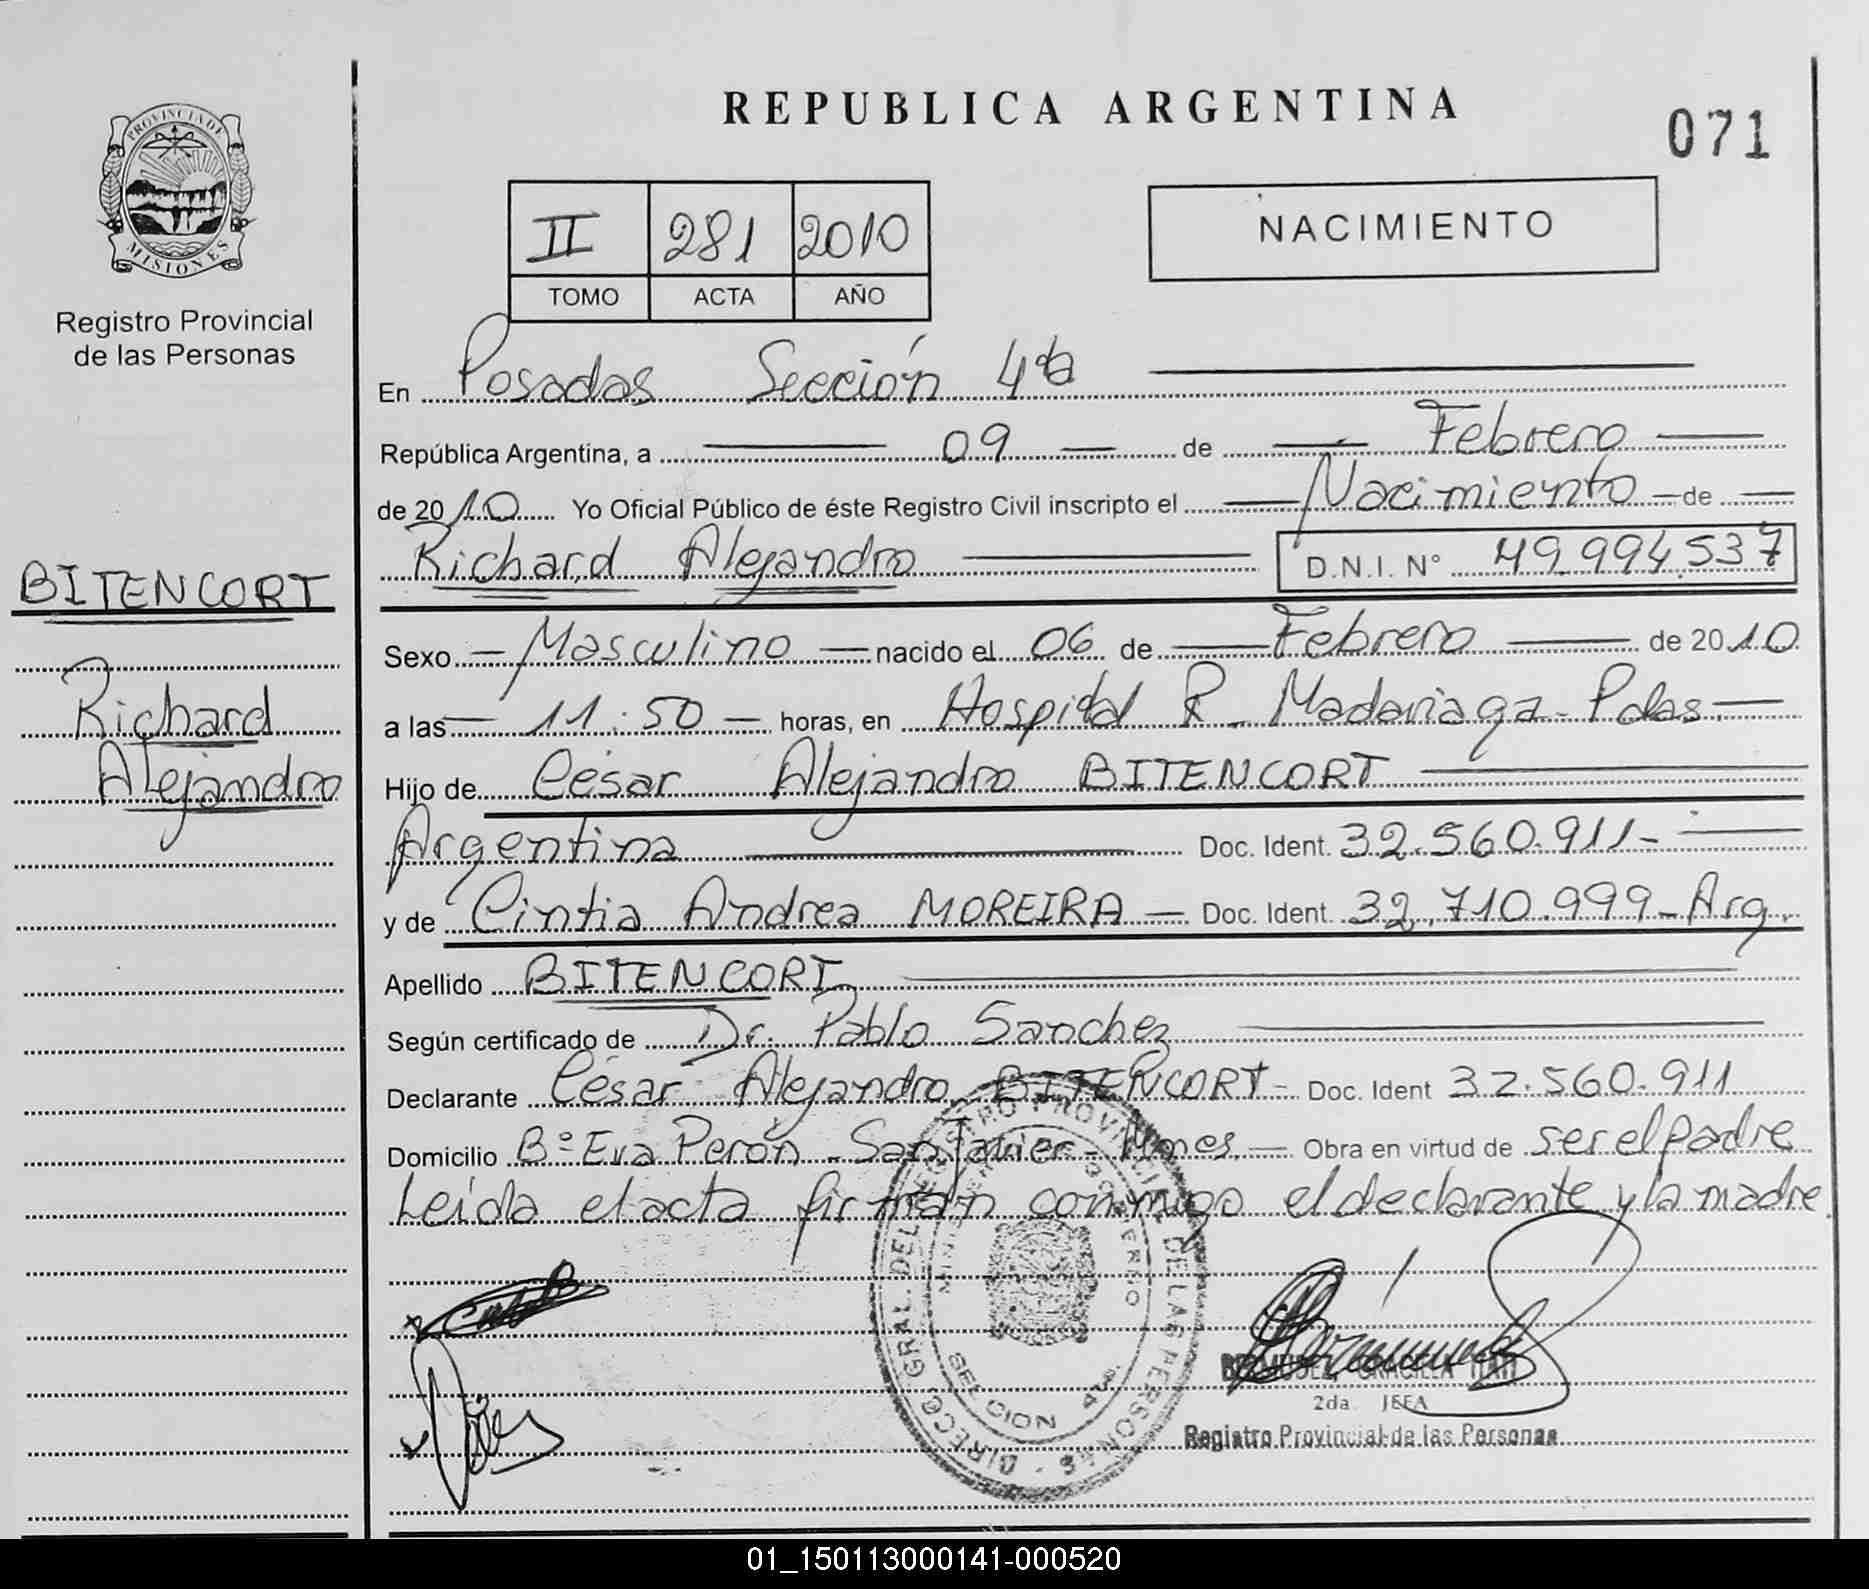 REPUBLICA ARGENTINA
071
PROVINCIA DE
MISIONES
Registro Provincial
de las Personas
II 281 2010
TOMO ACTA AÑO
NACIMIENTO
En Posadas Sección 4ta
República Argentina, a 09 de Febrero
de 2010 Yo Oficial Público de éste Registro Civil inscripto el Nacimiento de
Richard Alejandro D.N.I. N° 49.994.537
BITENCORT
Richard
Alejandro
Sexo Masculino nacido el 06 de Febrero de 2010
a las 11:50 horas, en Hospital R. Madariaga - Pdas.
Hijo de César Alejandro BITENCORT
Argentina Doc. Ident. 32.560.911-
y de Cintia Andrea MOREIRA - Doc. Ident. 32.710.999-Arg.
Apellido BITENCORT
Según certificado de Dr. Pablo Sanchez
Declarante César Alejandro BITENCORT - Doc. Ident 32.560.911
Domicilio B° Eva Perón - San Javier - Mnes. Obra en virtud de ser el padre
Leída el acta firman conmigo el declarante y la madre.
DIRECC. GRAL. DEL REGISTRO PROVINCIAL DE LAS PERSONAS
SECCION 4ta.
2da. JEFA
Registro Provincial de las Personas
01_150113000141-000520